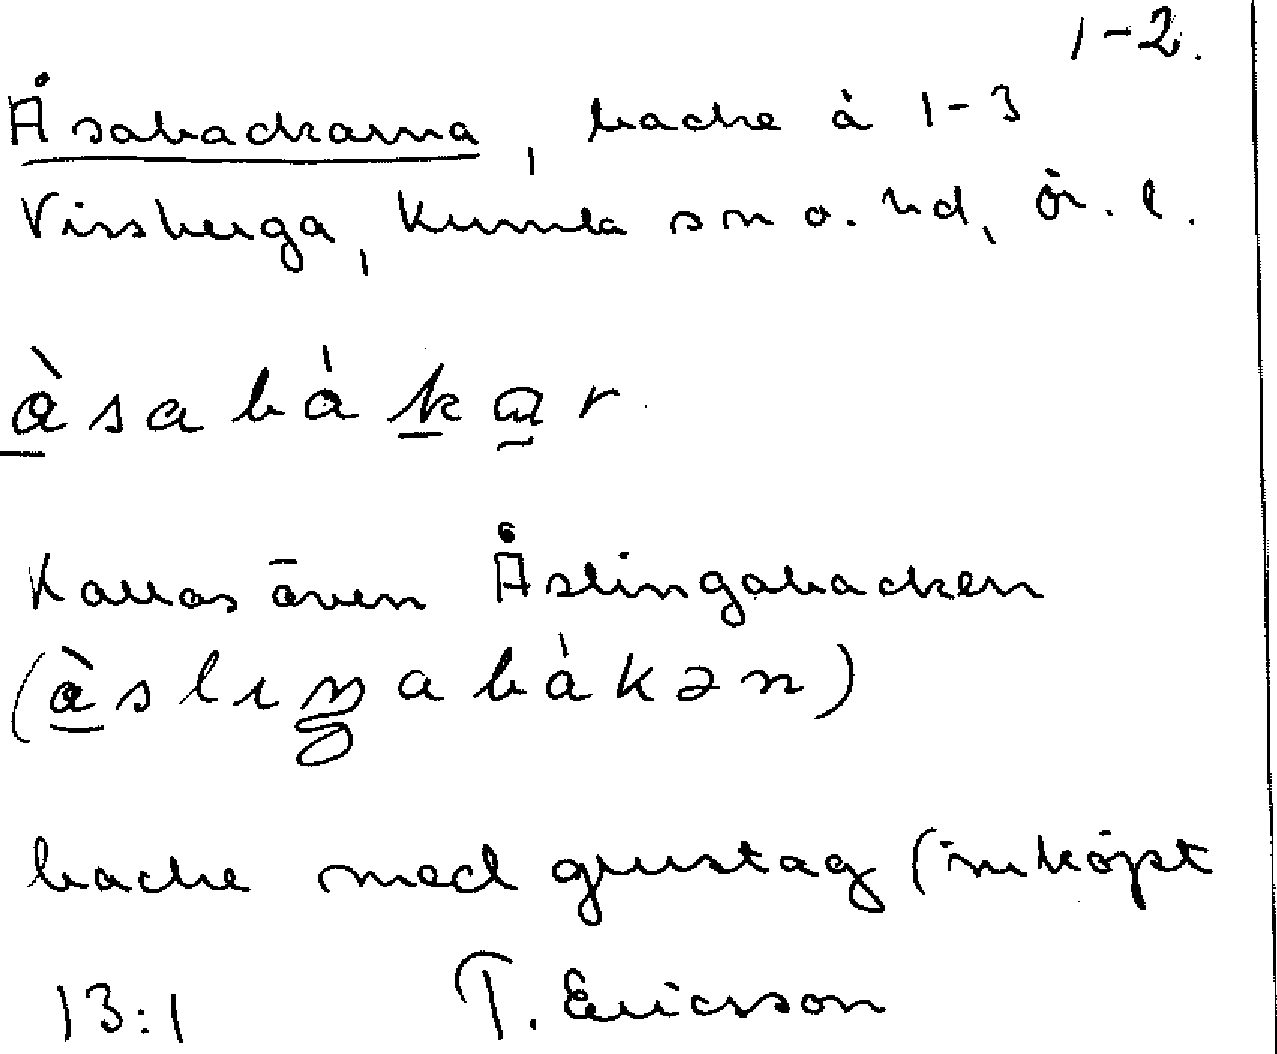 1-2.
Åsabackarna, backe å 1-3
Vissberga, Kumla sn o. hd, ör. l.
å̀sabákar
Kallas även Åslingabacken
(å̀slıŋabákən)
backe med grustag (inköpt
13:1 T. Ericsson